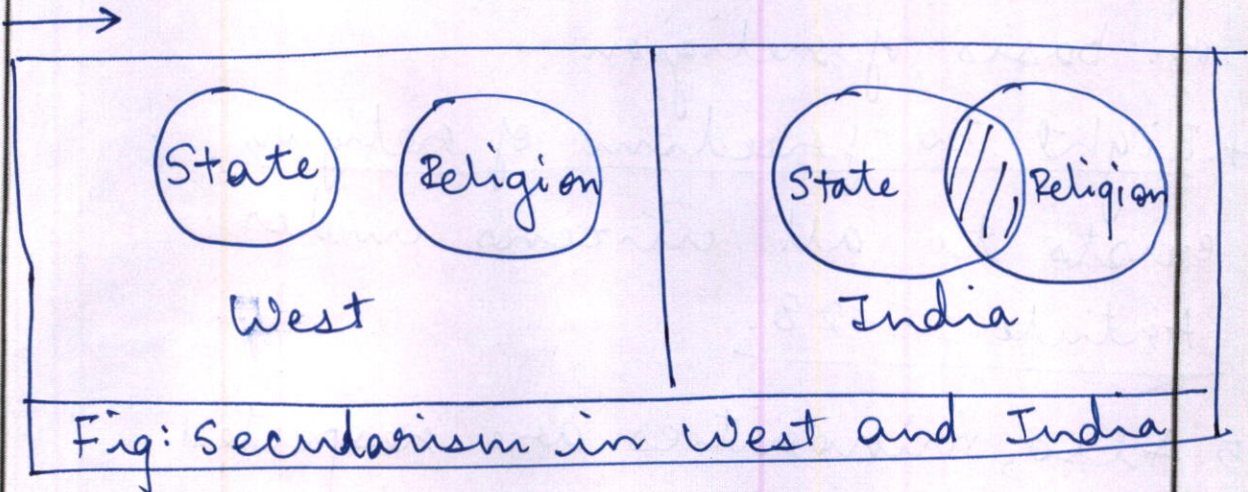 State Religion State Religion
West India
Fig: Secularism in West and India